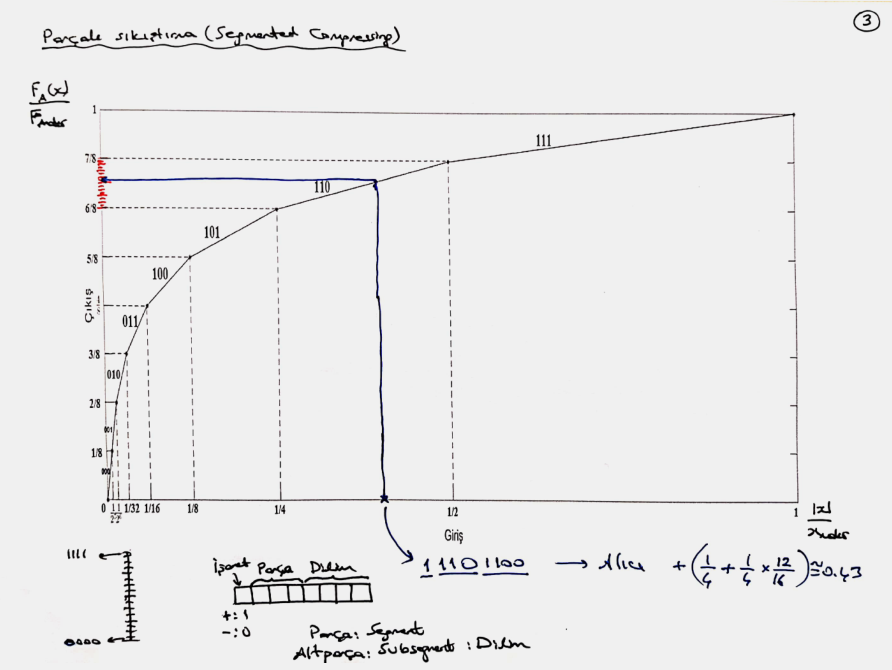 3
Parçalı sıkıştırma (Segmented Compressing)
F_A(x)
1
7/8
6/8
5/8
3/8
2/8
1/8
Çıkış
111
110
101
100
011
010
001
000
0 1/32 1/16 1/8 1/4 1/2 1
Giriş
|x|
1111
0000
İşaret Parça Dilim
+:1
-:0
Parça: Segment
Altparça: Subsegment : Dilim
1 110 1100 → Alıcı + (1/4 + 1/4 × 12/16) ≅ 0.43